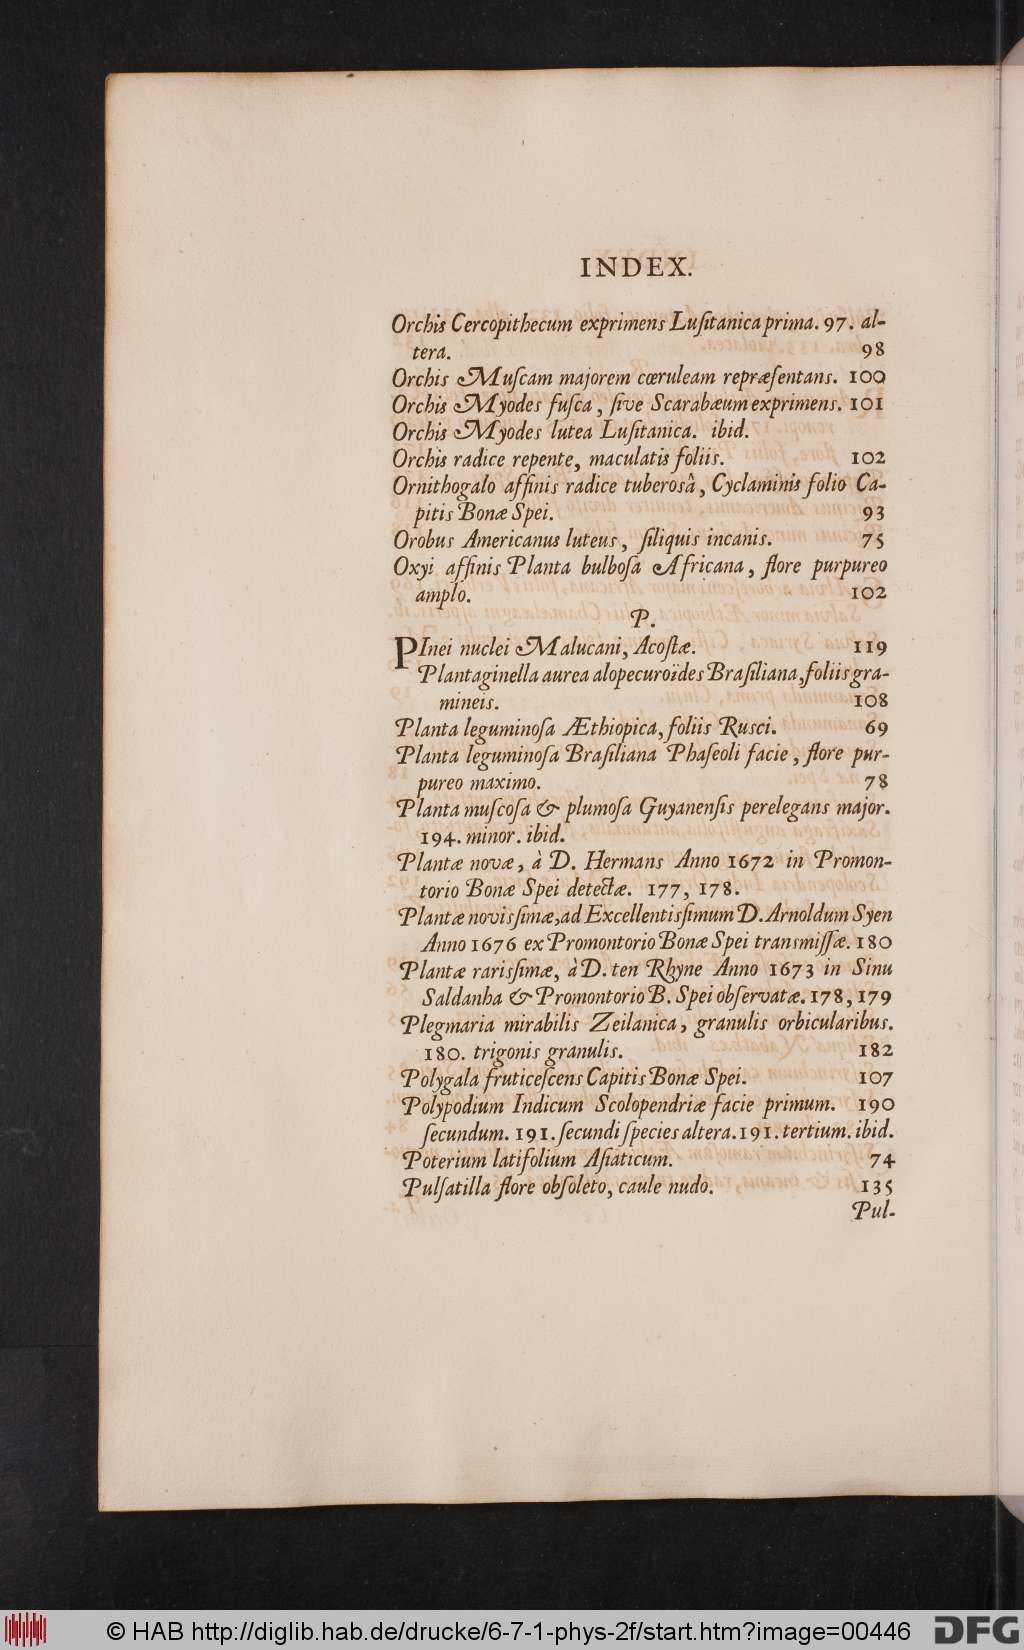 INDEX.
Orchis Cercopithecum exprimens Luſitanica prima. 97. al-
tera. 98
Orchis Muſcam majorem cœruleam repræſentans. 100
Orchis Myodes fuſca, ſive Scarabæum exprimens. 101
Orchis Myodes lutea Luſitanica. ibid.
Orchis radice repente, maculatis foliis. 102
Ornithogalo affinis radice tuberosâ, Cyclaminis folio Ca-
pitis Bonæ Spei. 93
Orobus Americanus luteus, ſiliquis incanis. 75
Oxyi affinis Planta bulboſa Africana, flore purpureo
amplo. 102
P.
PInei nuclei Malucani, Acoſtæ. 119
Plantaginella aurea alopecuroïdes Braſiliana, foliis gra-
mineis. 108
Planta leguminoſa Æthiopica, foliis Rusci. 69
Planta leguminoſa Braſiliana Phaſeoli facie, flore pur-
pureo maximo. 78
Planta muſcoſa & plumoſa Guyanenſis perelegans major.
194. minor. ibid.
Plantæ novæ, à D. Hermans Anno 1672 in Promon-
torio Bonæ Spei detectæ. 177, 178.
Plantæ novisſimæ, ad Excellentisſimum D. Arnoldum Syen
Anno 1676 ex Promontorio Bonæ Spei transmiſſæ. 180
Plantæ rarisſimæ, à D. ten Rhyne Anno 1673 in Sinu
Saldanha & Promontorio B. Spei obſervatæ. 178, 179
Plegmaria mirabilis Zeilanica, granulis orbicularibus.
180. trigonis granulis. 182
Polygala fruticeſcens Capitis Bonæ Spei. 107
Polypodium Indicum Scolopendriæ facie primum. 190
ſecundum. 191. ſecundi ſpecies altera. 191. tertium. ibid.
Poterium latifolium Aſiaticum. 74
Pulſatilla flore obſoleto, caule nudo. 135
Pul-
© HAB http://diglib.hab.de/drucke/6-7-1-phys-2f/start.htm?image=00446
DFG